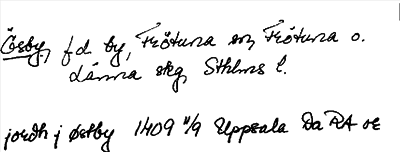 Össby, f.d. by, Frötuna sn, Frötuna o.
Länna skg, Sthlms l.
jordh j Øsby 1409 11/9 Uppsala Da RA oc